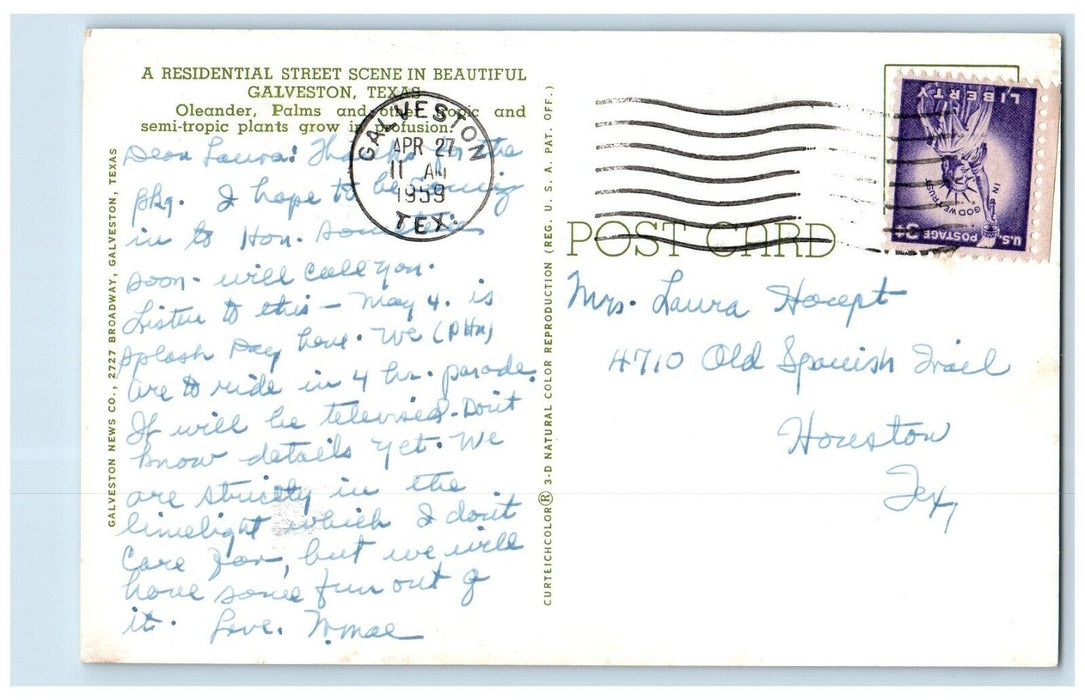 A RESIDENTIAL STREET SCENE IN BEAUTIFUL
GALVESTON, TEXAS
Oleander, Palms and other tropic and
semi-tropic plants grow in profusion.
Dear Laura: Thanks for the
pkg. I hope to be coming
in to Hou. sometime
soon - will call you.
Listen to this - May 4. is
Splash Day here. We
are to ride in 4 hr. parade.
It will be televised. Don't
know details yet. We
are strictly in the
limelight which I don't
care for, but we will
have some fun out of
it. Love.
GALVESTON NEWS CO., 2727 BROADWAY, GALVESTON, TEXAS
GALVESTON
APR 27
11 AM
1959
TEX.
CURTEICHCOLOR® 3-D NATURAL COLOR REPRODUCTION (REG. U. S. A. PAT. OFF.)
POST CARD
LIBERTY
IN GOD WE TRUST
U.S. POSTAGE 3¢
Mrs. Laura
4710 Old Spanish Trail
Houston
Tex,